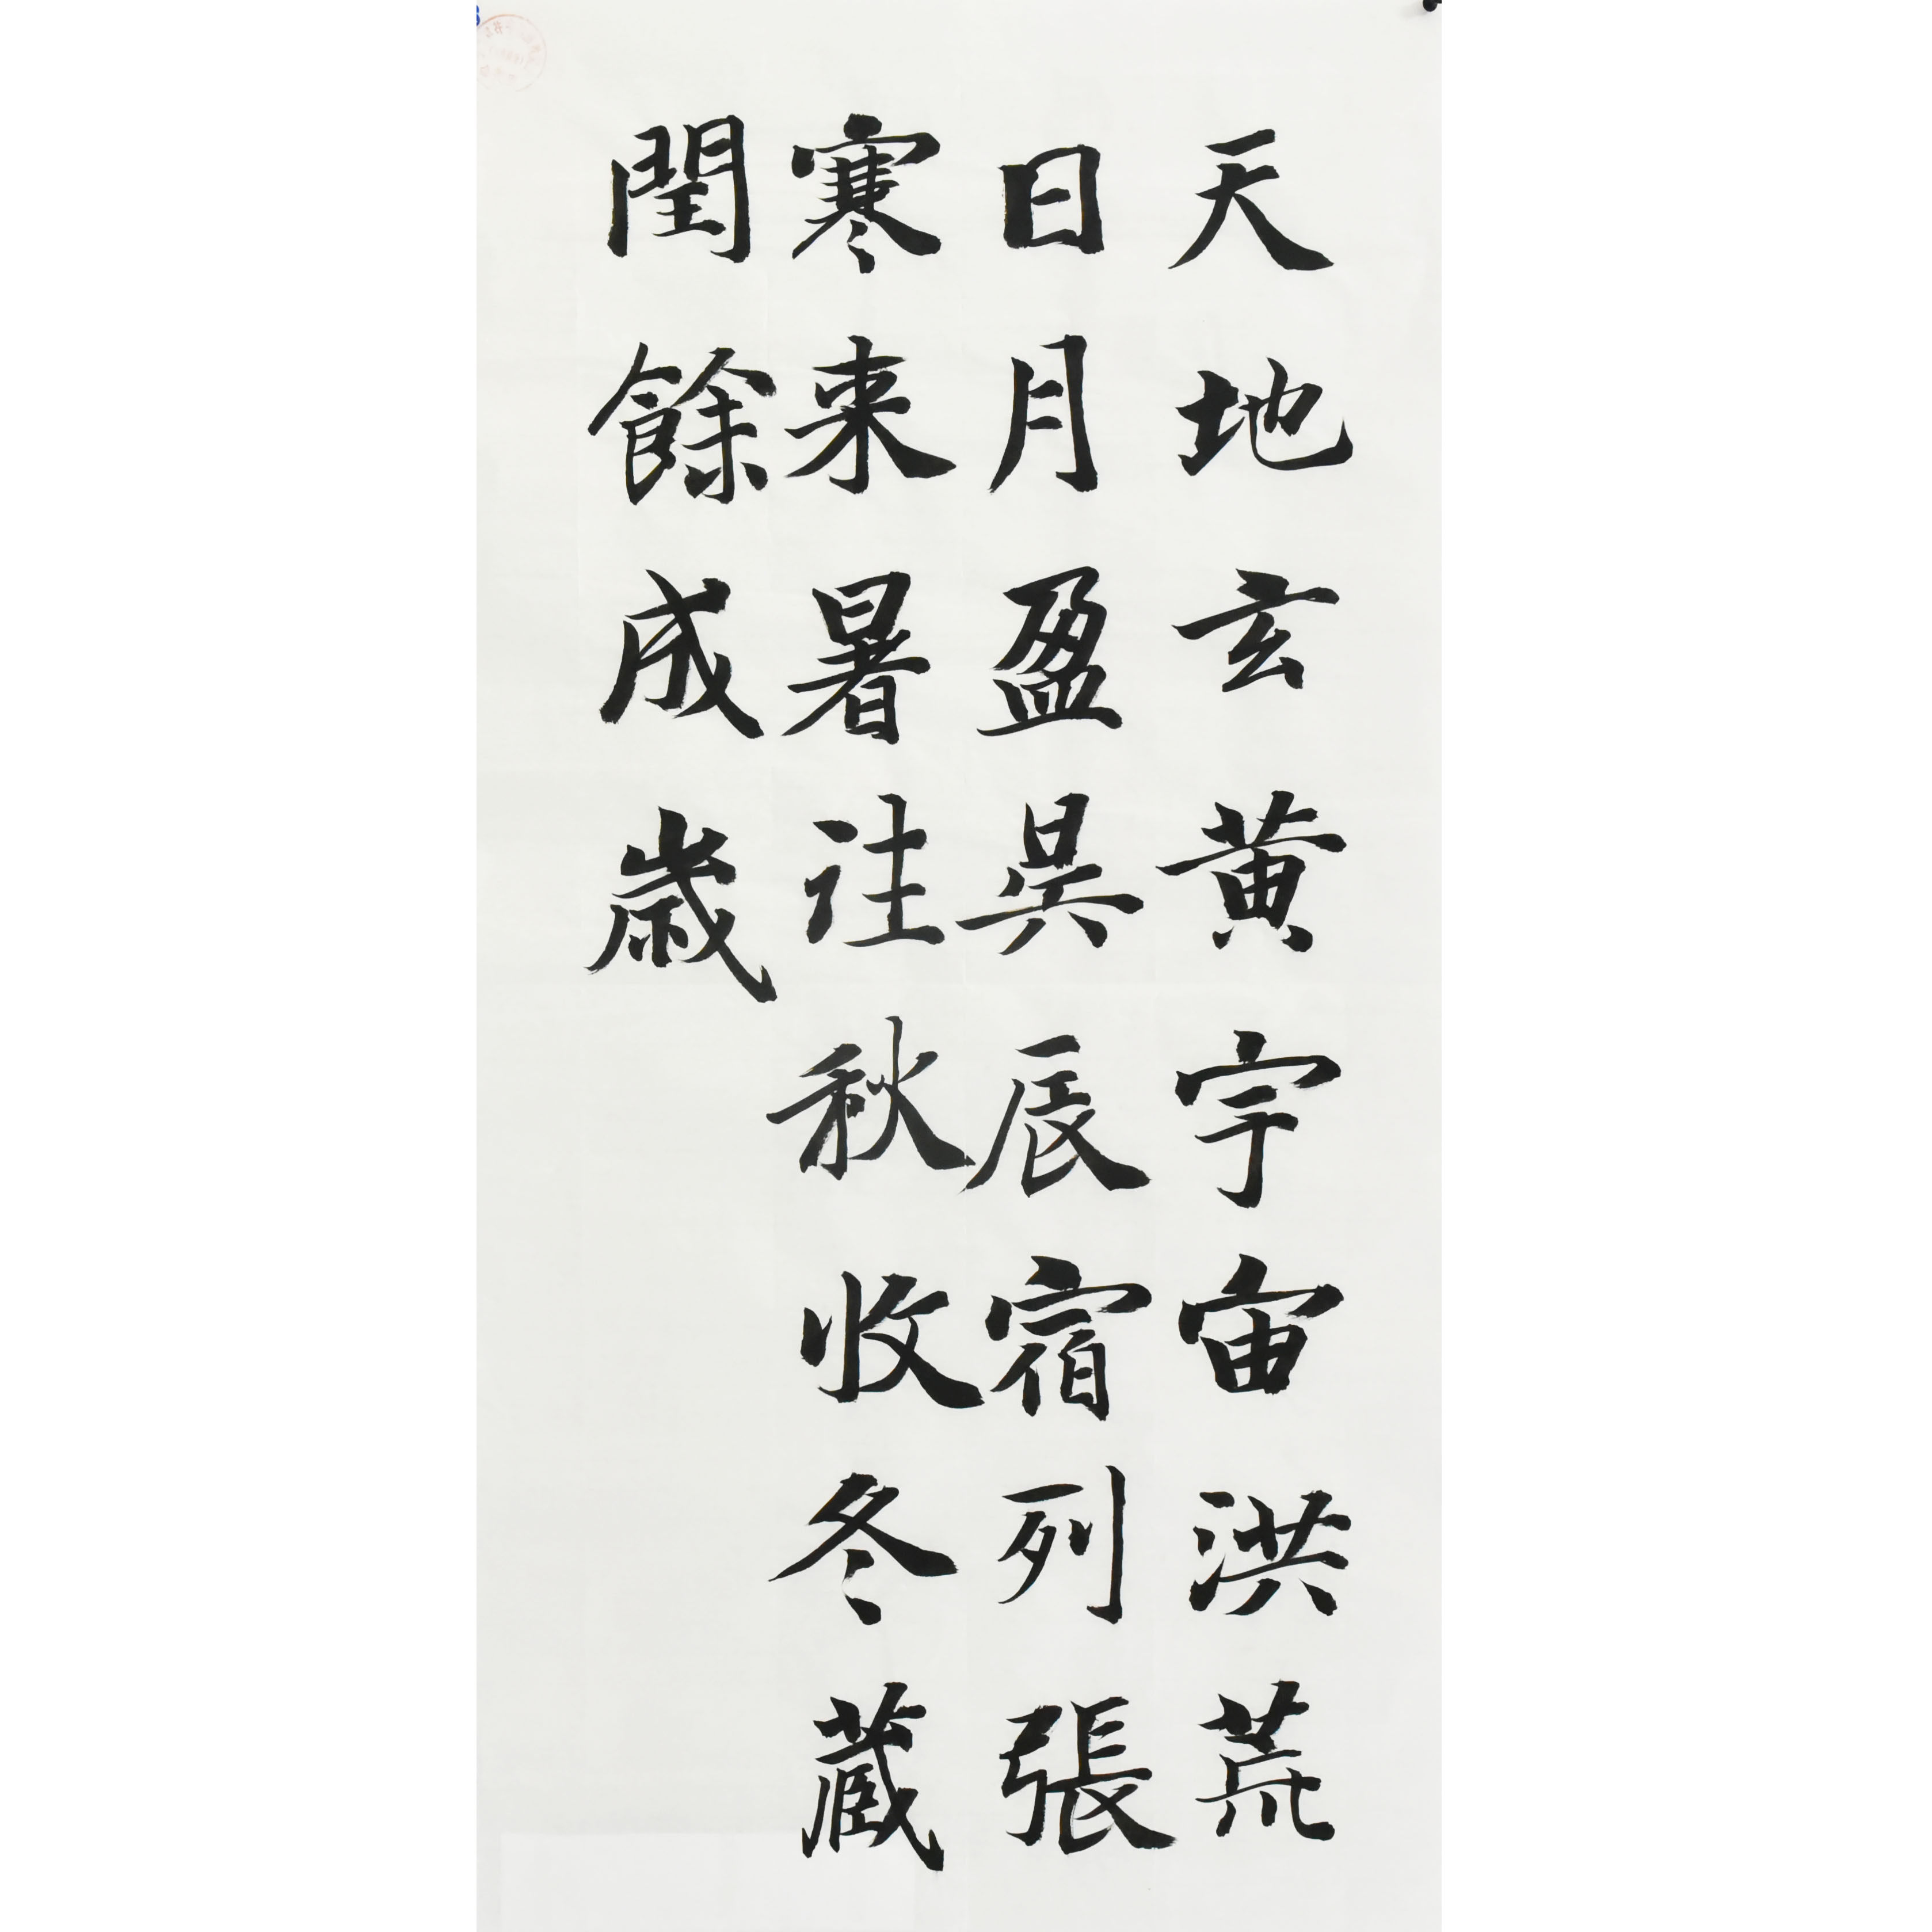 天地玄黄宇宙洪荒
日月盈昃辰宿列張
寒来暑往秋收冬蔵
閏餘成歳